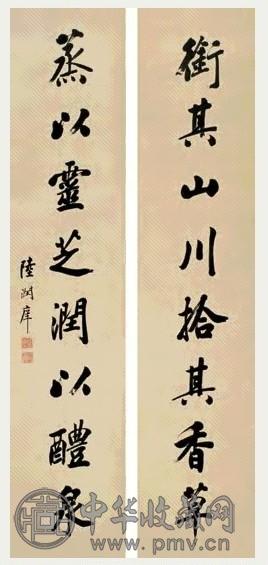 銜其山川拾其香草
蒸以靈芝潤以醴泉
陸潤庠
中华收藏网
www.pmv.cn